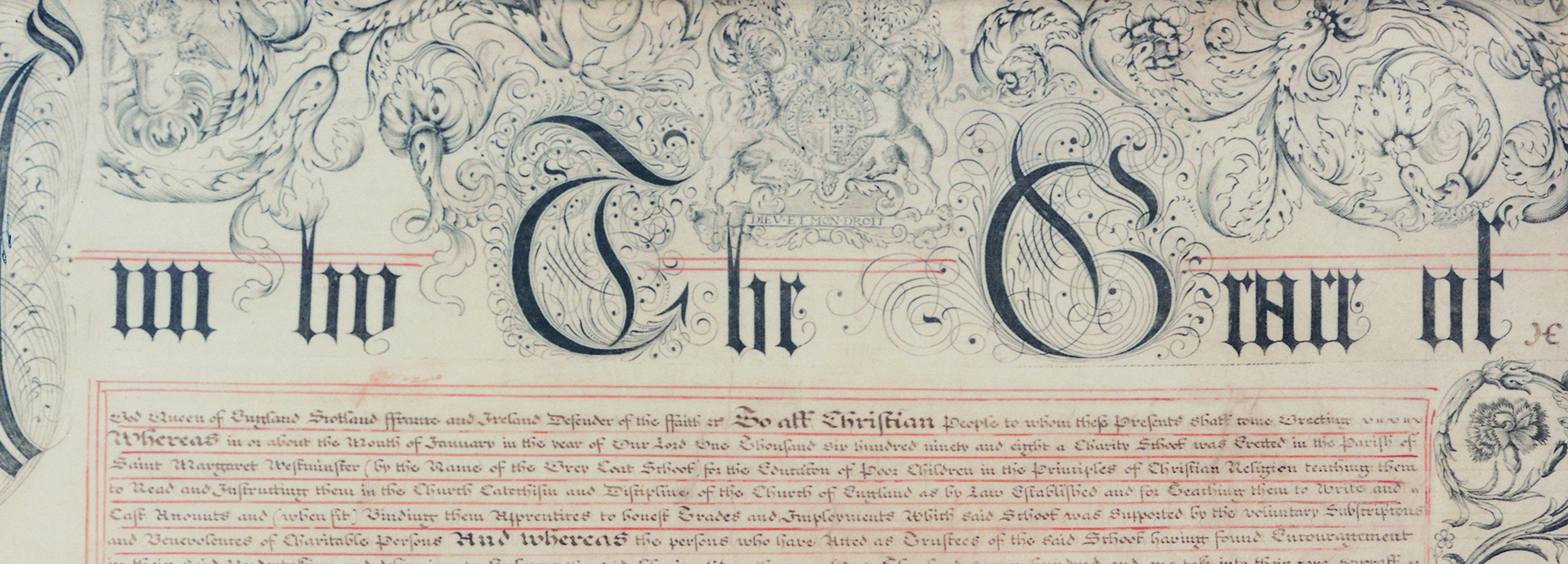 DIEV·ET·MON·DROIT
nn by The Grace of
God Queen of England Scotland ffrance and Ireland Defender of the ffaith &c To all Christian People to whom these Presents shall come Greeting
Whereas in or about the Month of January in the year of Our Lord One Thousand six hundred ninety and eight a Charity School was Erected in the Parish of
Saint Margaret Westminster (by the Name of the Grey Coat School) for the Education of Poor Children in the Principles of Christian Religion teaching them
to Read and Instructing them in the Church Catechism and Discipline of the Church of England as by Law Established and for Teaching them to Write and
Cast Accounts and (when fit) Binding them Apprentices to honest Trades and Imployments Which said School was Supported by the voluntary Subscriptions
and Benevolences of Charitable Persons And whereas the persons who have Acted as Trustees of the said School having found Encouragement